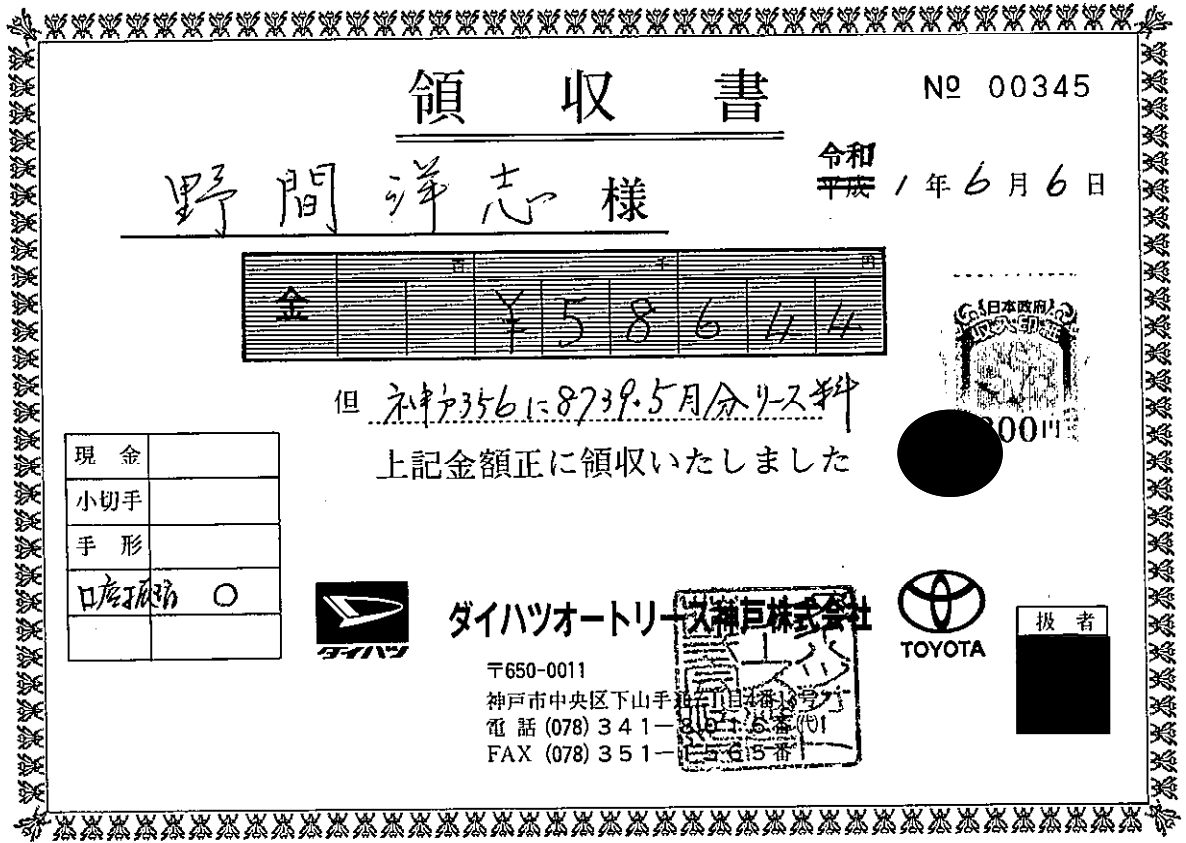 領収書
№ 00345
令和
平成 1年6月6日
野間洋志 様
百 千 円
金 ¥58644
日本政府
200円
但 神戸356に8739.5月分リース料
上記金額正に領収いたしました
現金
小切手
手形
口座振替 ○
ダイハツ
ダイハツオートリース神戸株式会社
TOYOTA
扱者
〒650-0011
神戸市中央区下山手
電話 (078) 341-3016番 (代)
FAX (078) 351-1565番